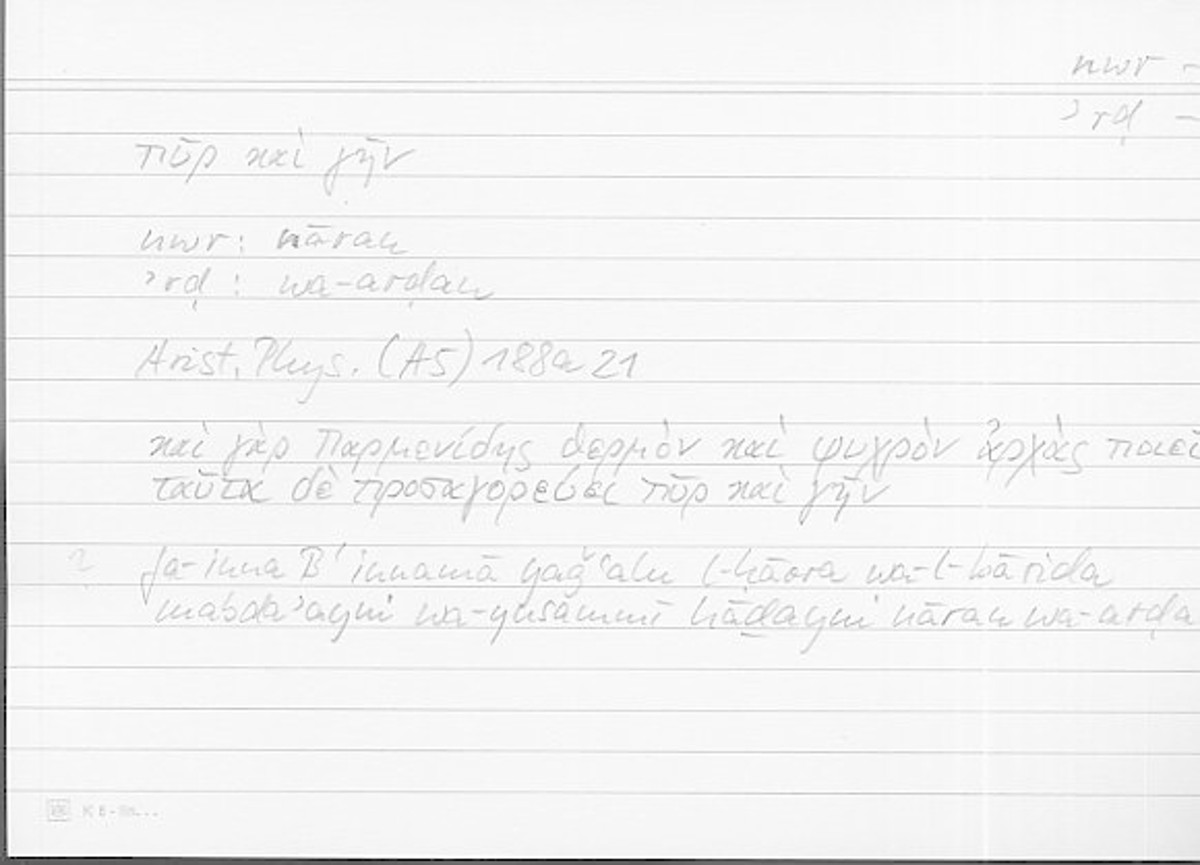 nwr –
ʾrḍ –
πῦρ καὶ γῆν
nwr: nāran
ʾrḍ: wa-arḍan
Arist. Phys. (A5) 188a 21
καὶ γὰρ Παρμενίδης θερμὸν καὶ ψυχρὸν ἀρχὰς ποιεῖ
ταῦτα δὲ προσαγορεύει πῦρ καὶ γῆν
? fa-inna B' innamā yaǧʿalu l-ḥārra wa-l-bārida
mabdaʾayni wa-yusammī hāḏayni nāran wa-arḍa